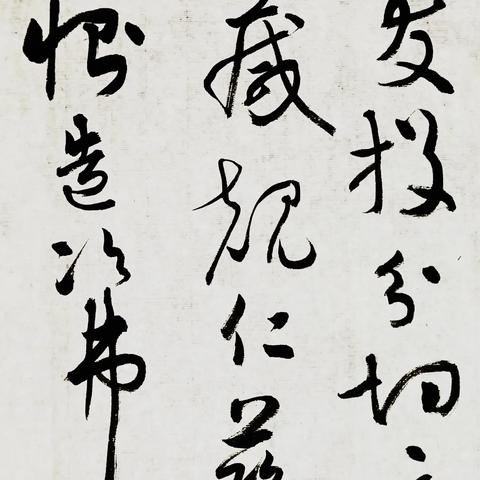 友投分切
箴規仁慈
惻造次弗